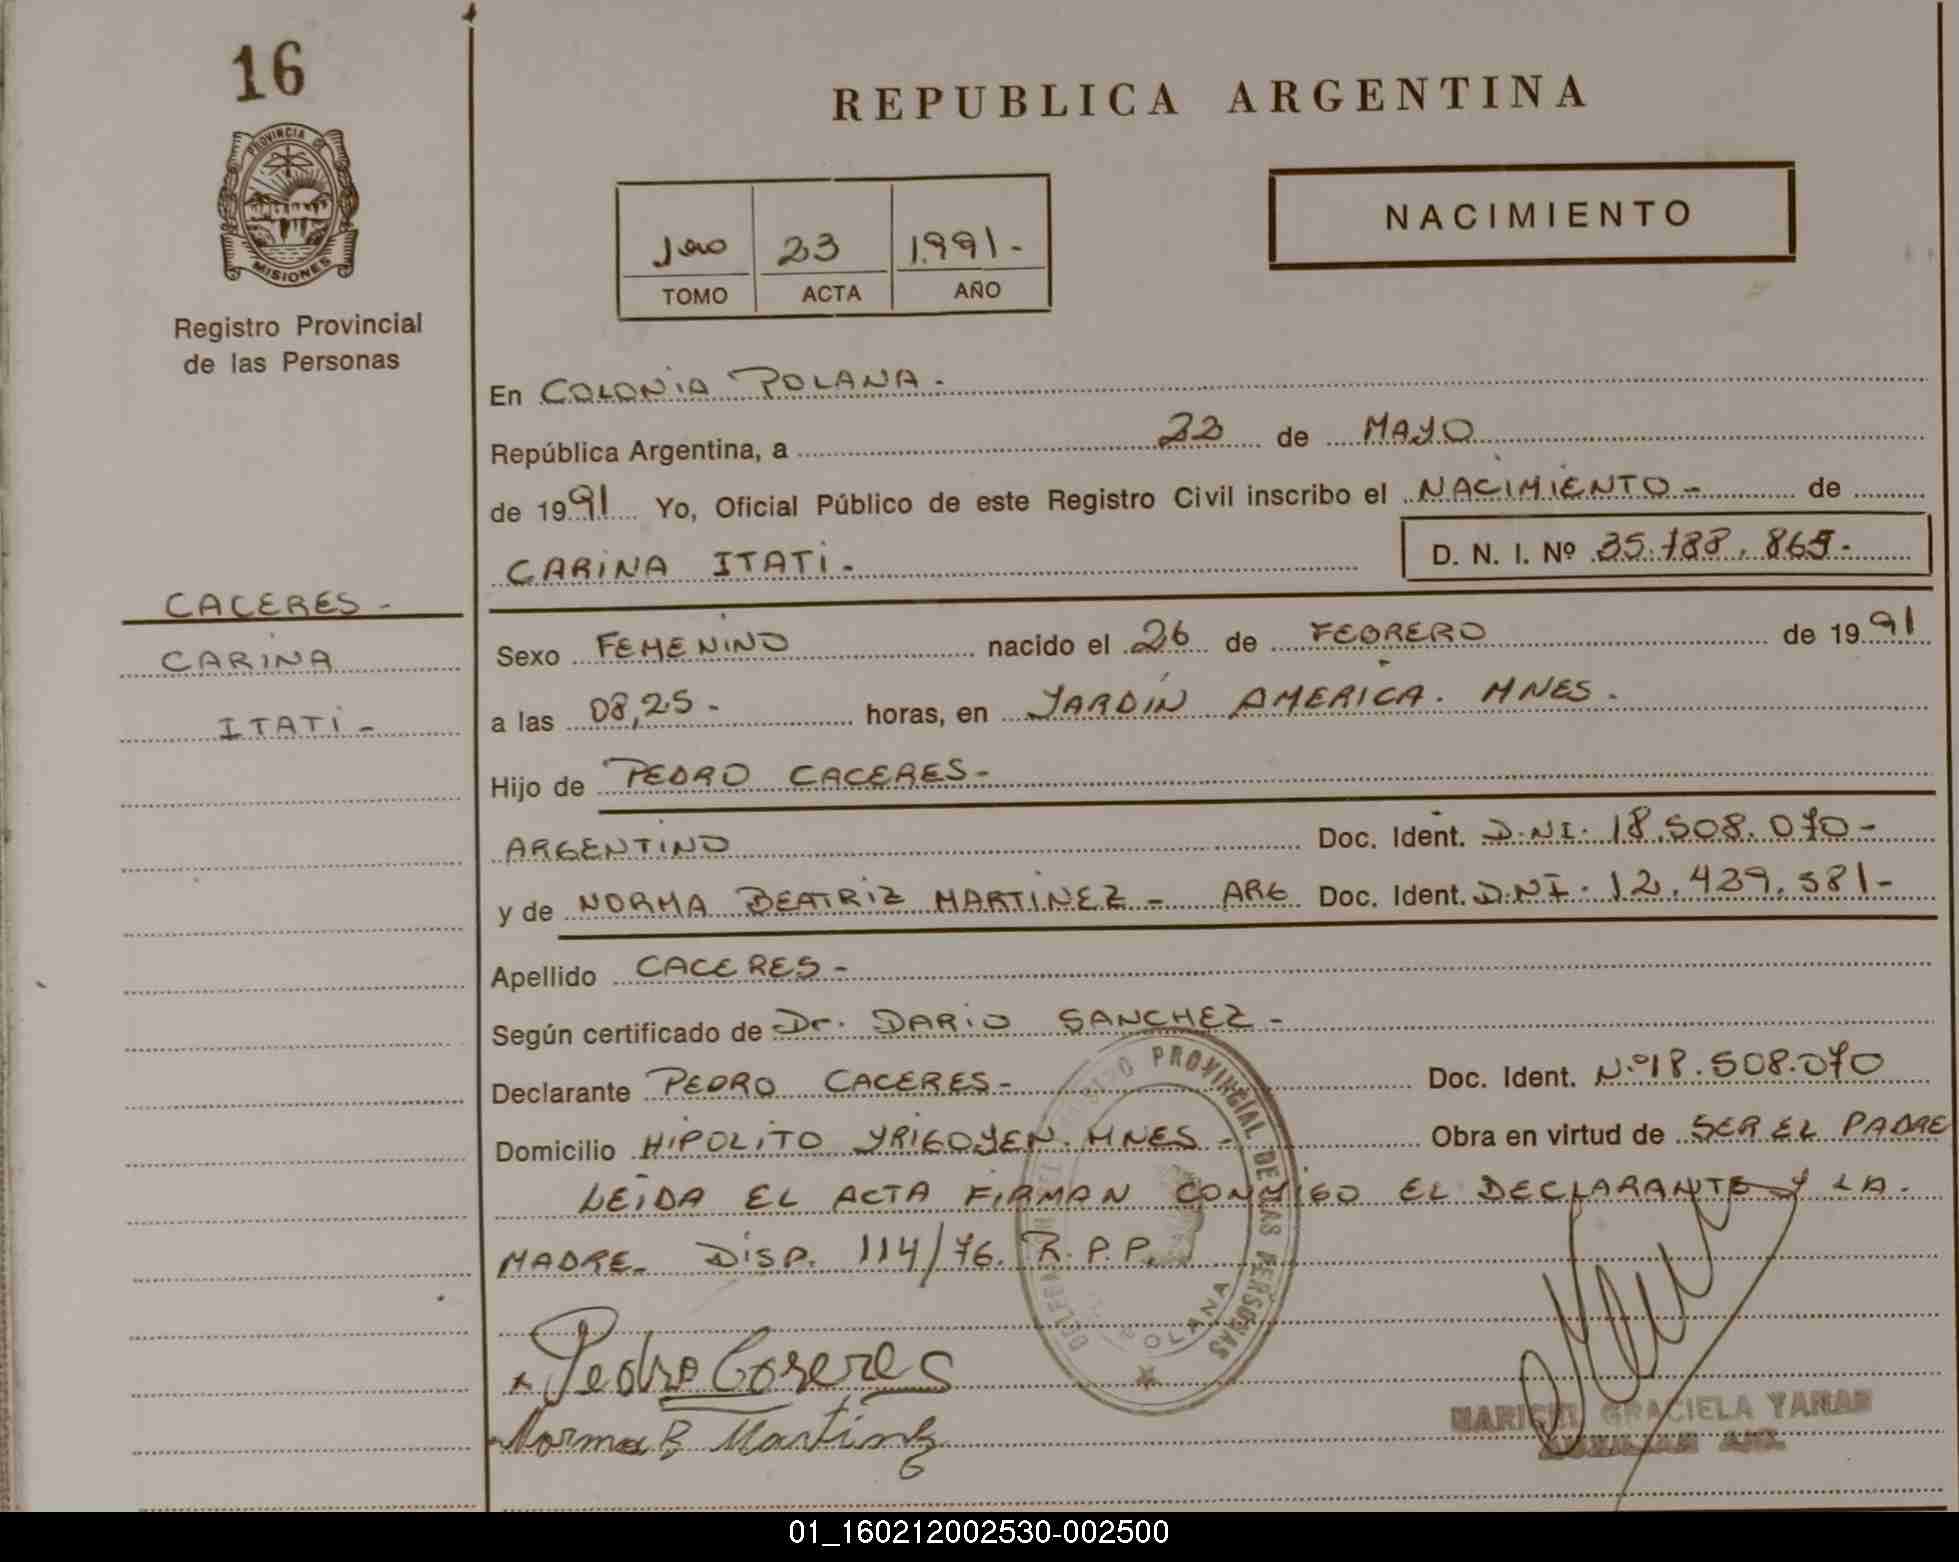 16
REPUBLICA ARGENTINA
PROVINCIA DE
MISIONES
Registro Provincial
de las Personas
NACIMIENTO
1ero 23 1.991-
TOMO ACTA AÑO
En COLONIA POLANA.
República Argentina, a 22 de MAYO
de 1991 Yo, Oficial Público de este Registro Civil inscribo el NACIMIENTO - de
CARINA ITATI. D. N. I. Nº 35.188.865.-
CACERES -
CARINA
ITATI -
Sexo FEMENINO nacido el 26 de FEBRERO de 1991
a las 08,25 - horas, en JARDIN AMERICA. MNES.
Hijo de PEDRO CACERES-
ARGENTINO Doc. Ident. D.NI. 18.508.070-
y de NORMA BEATRIZ MARTINEZ - ARG Doc. Ident. D.NI. 12.429.581-
Apellido CACERES -
Según certificado de Dr. DARIO SANCHEZ -
Declarante PEDRO CACERES- Doc. Ident. N.º18.508.070
Domicilio HIPOLITO YRIGOYEN. MNES - Obra en virtud de SER EL PADRE
LEIDA EL ACTA FIRMAN CONMIGO EL DECLARANTE Y LA.
MADRE- DISP. 114/76. R.P.P.
PROVINCIAL DE LAS PERSONAS
OLANA
x Pedro Caseres
Norma B Martinez
GRACIELA YANAN
01_160212002530-002500